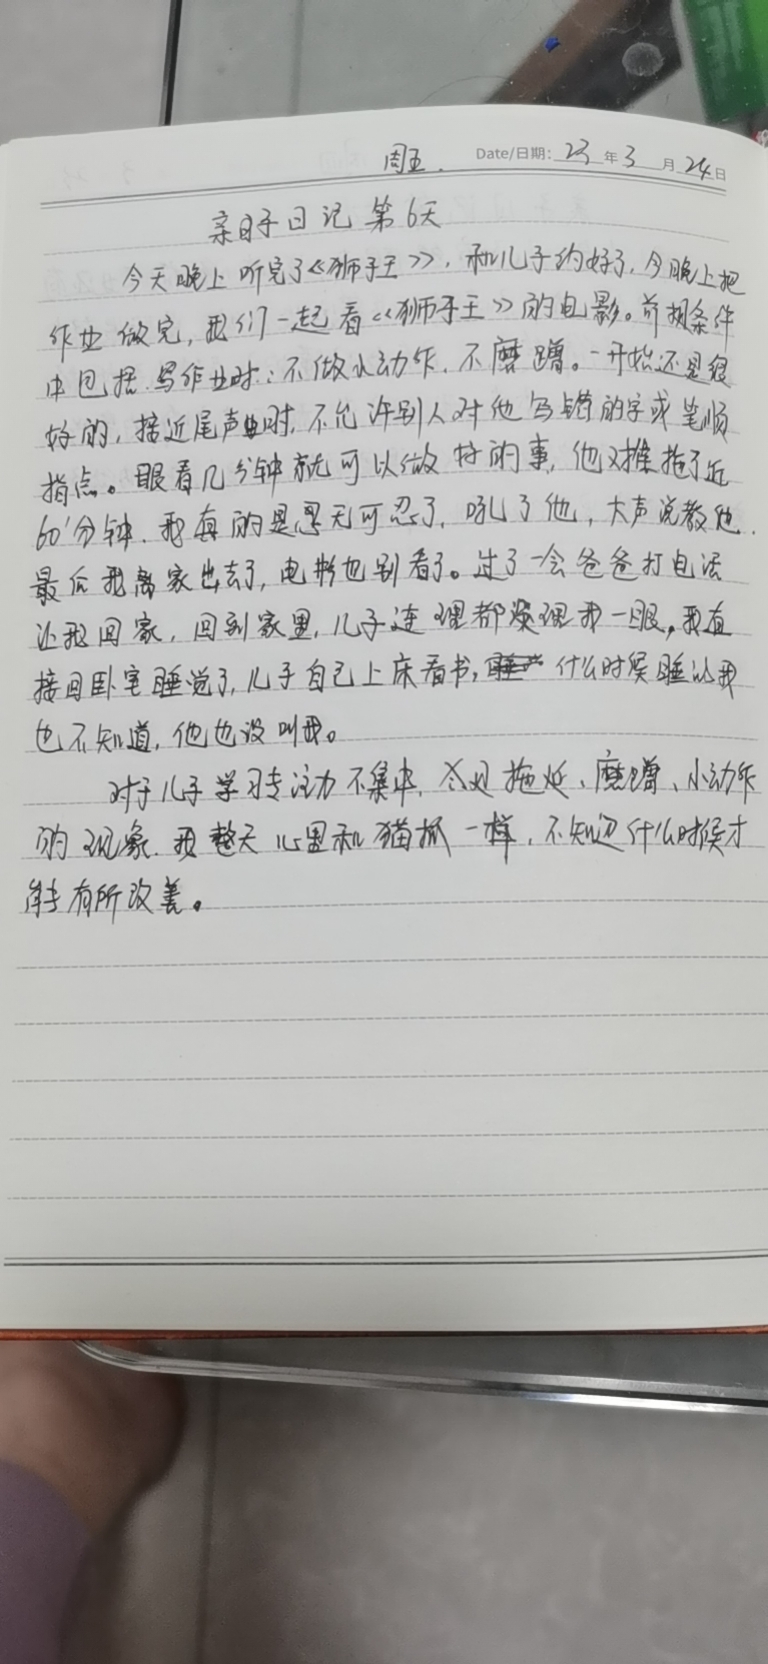 周五. Date/日期: 23 年 3 月 24 日
亲子日记 第6天
今天晚上听完了《狮子王》, 和儿子约好了, 今晚上把
作业做完, 我们一起看《狮子王》的电影。前提条件
中包括 写作业时: 不做小动作, 不磨蹭。一开始还是很
好的, 接近尾声时, 不允许别人对他写错的字或笔顺
指点。眼看几分钟就可以做好的事, 他又推拖了近
60分钟, 我真的是忍无可忍了, 吼了他, 大声说教他.
最后我离家出去了, 电影也别看了。过了一会爸爸打电话
让我回家, 回到家里, 儿子连理都没理我一眼, 我直
接回卧室睡觉了, 儿子自己上床看书, 什么时候睡的我
也不知道, 他也没叫我。
对于儿子学习专注力不集中, 总是拖延、磨蹭、小动作
的现象, 我整天心里和猫抓一样, 不知道什么时候才
能有所改善。